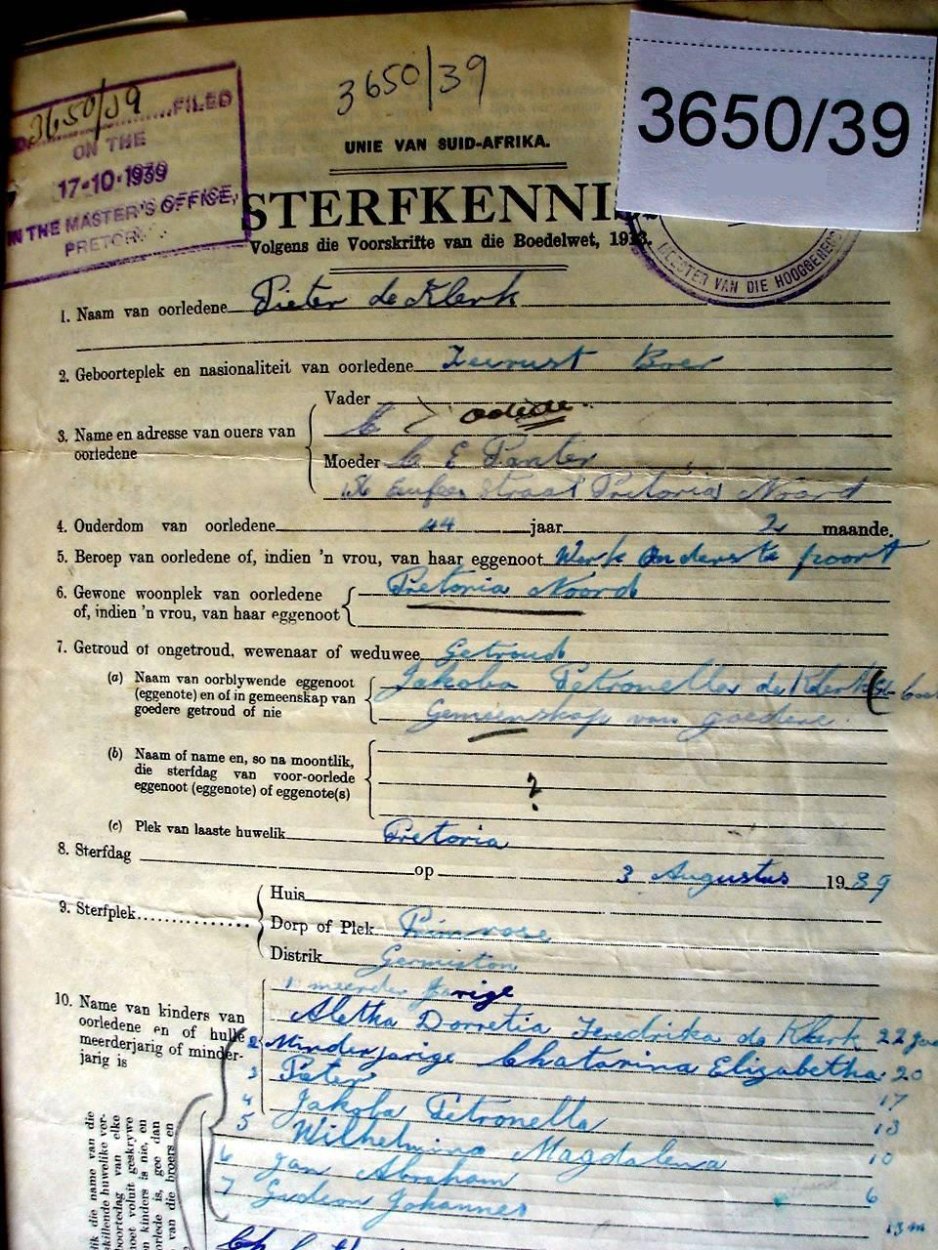 3650/39 FILED
ON THE
17-10-1939
IN THE MASTER'S OFFICE,
3650/39
3650/39
UNIE VAN SUID-AFRIKA.
STERFKENNIS
Volgens die Voorskrifte van die Boedelwet, 1913.
MEESTER VAN DIE HOOGGEREG
1. Naam van oorledene Pieter de Klerk
2. Geboorteplek en nasionaliteit van oorledene Zeerust Boer
3. Name en adresse van ouers van oorledene
Vader
Moeder C E
Straat Pretoria Noord
4. Ouderdom van oorledene 44 jaar 2 maande.
5. Beroep van oorledene of, indien 'n vrou, van haar eggenoot Werk Onderste poort
6. Gewone woonplek van oorledene of, indien 'n vrou, van haar eggenoot Pretoria Noord
7. Getroud of ongetroud, wewenaar of weduwee Getroud
(a) Naam van oorblywende eggenoot (eggenote) en of in gemeenskap van goedere getroud of nie
Jakoba Petronella de Klerk
Gemeenskap van goedere.
(b) Naam of name en, so na moontlik, die sterfdag van voor-oorlede eggenoot (eggenote) of eggenote(s)
?
(c) Plek van laaste huwelik Pretoria
8. Sterfdag op 3 Augustus 1939
9. Sterfplek
Huis
Dorp of Plek Primrose
Distrik Germiston
10. Name van kinders van oorledene en of hulle meerderjarig of minderjarig is
1 meerder jarige
Aletha Dorretia Fredrika de Klerk 22
2 Minderjarige Chatarina Elizabetha 20
3 Pieter 17
4 Jakoba Petronella 13
5 Wilhelmina Magdalena 10
6 Jan Abraham 6
7 Gideon Johannes 13 m